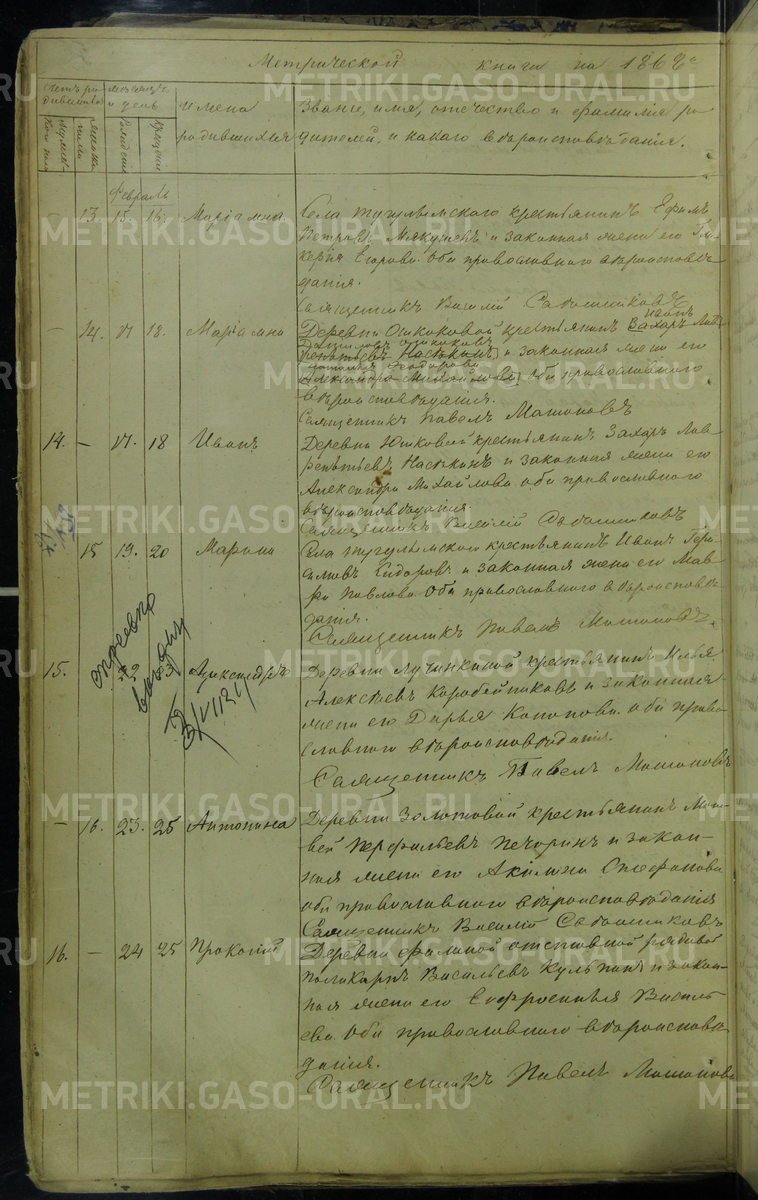 Метрической книги на 1868 г.
Счетъ родившихся
Мужеска пола
Женска пола
мѣсяцъ и день
Рожденія
Крещенія
имена родившихся
Званіе, имя, отечество и фамилія ро
дителей, и какаго вѣроисповѣданія.
Февраль
– 13 15. 16. Маріамна Села Тугулымскаго крестьянинъ Ефимъ
Петровъ Мякушевъ и законная жена его Гли
керія Егорова. Оба православнаго вѣроисповѣ
данія.
Священникъ Василій
– 14. 17 18. Маріамна Деревни крестьянинъ Захаръ Лав
Иванъ
рентьевъ Насѣкинъ и законная жена его
Даниловъ
Александра Михайлова оба православнаго
Ѳеодорова
вѣроисповѣданія.
Священникъ Павелъ
14. – 17. 18 Иванъ Деревни Юшковой крестьянинъ Захаръ Лав
рентьевъ Насѣкинъ и законная жена его
Александра Михайлова оба православнаго
вѣроисповѣданія.
Священникъ Василій
15 19. 20 Марѳа Села Тугулымскаго крестьянинъ Иванъ Гера
симовъ Сидоровъ и законная жена его Мав
ра Павлова Оба православнаго вѣроисповѣ
данія.
Священникъ Павелъ
15. Александръ Деревни Лучинкиной крестьянинъ Илья
Алексѣевъ Коробейниковъ и законная
жена его Дарья Кононова. оба право
славнаго вѣроисповѣданія.
Священникъ Павелъ
справка
выдана
– 16. 23. 25 Антонина Деревни Золотовой крестьянинъ Мат
вей Перфильевъ Печоринъ и закон
ная жена его Акилина Стефанова
оба православнаго вѣроисповѣданія
Священникъ Василій
16. – 24 25 Прокопій Деревни отставной рядовой
Поликарпъ Васильевъ и закон
ная жена его Евфросинья Василь
ева. Оба православнаго вѣроисповѣ
данія.
Священникъ Павелъ
METRIKI.GASO-URAL.RU